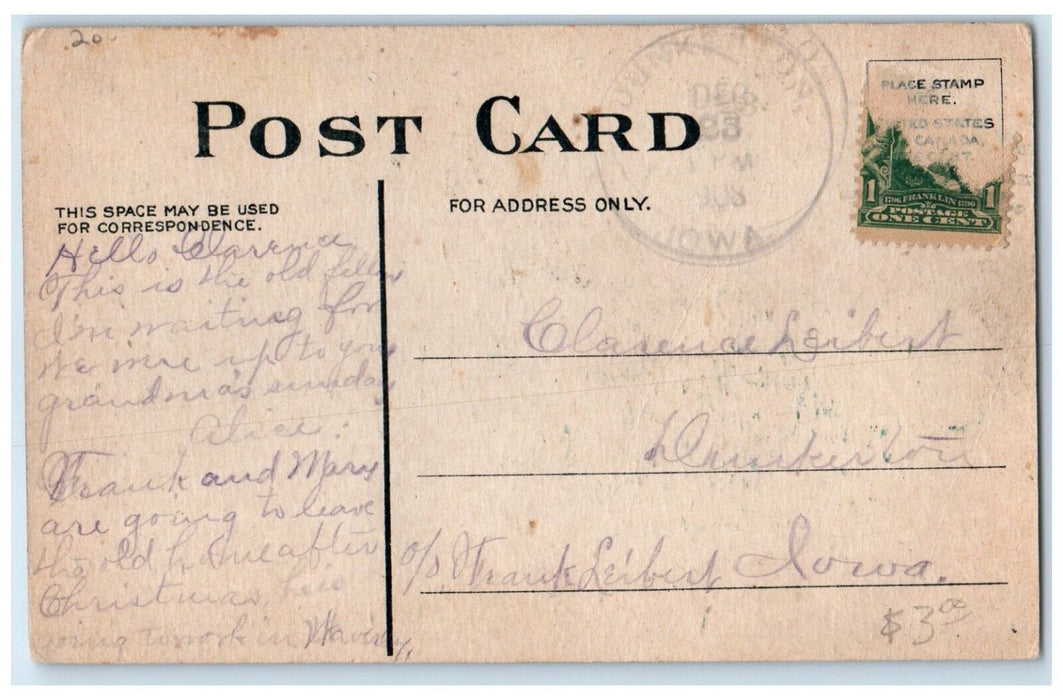 20
POST CARD
THIS SPACE MAY BE USED
FOR CORRESPONDENCE.
FOR ADDRESS ONLY.
DUNKERTON
DEC
1908
IOWA
PLACE STAMP
HERE.
UNITED STATES
CANADA,
1 1706 FRANKLIN 1790 1
POSTAGE
ONE CENT
Hello Clarence
This is the old fellow
I'm waiting for
We were up to your
grandma's sunday
Alice.
Frank and Mary
are going to leave
the old home after
Christmas, he is
going to work in Waverly,
Clarence Leibert
Dunkerton
c/o Frank Leibert Iowa.
$3.00